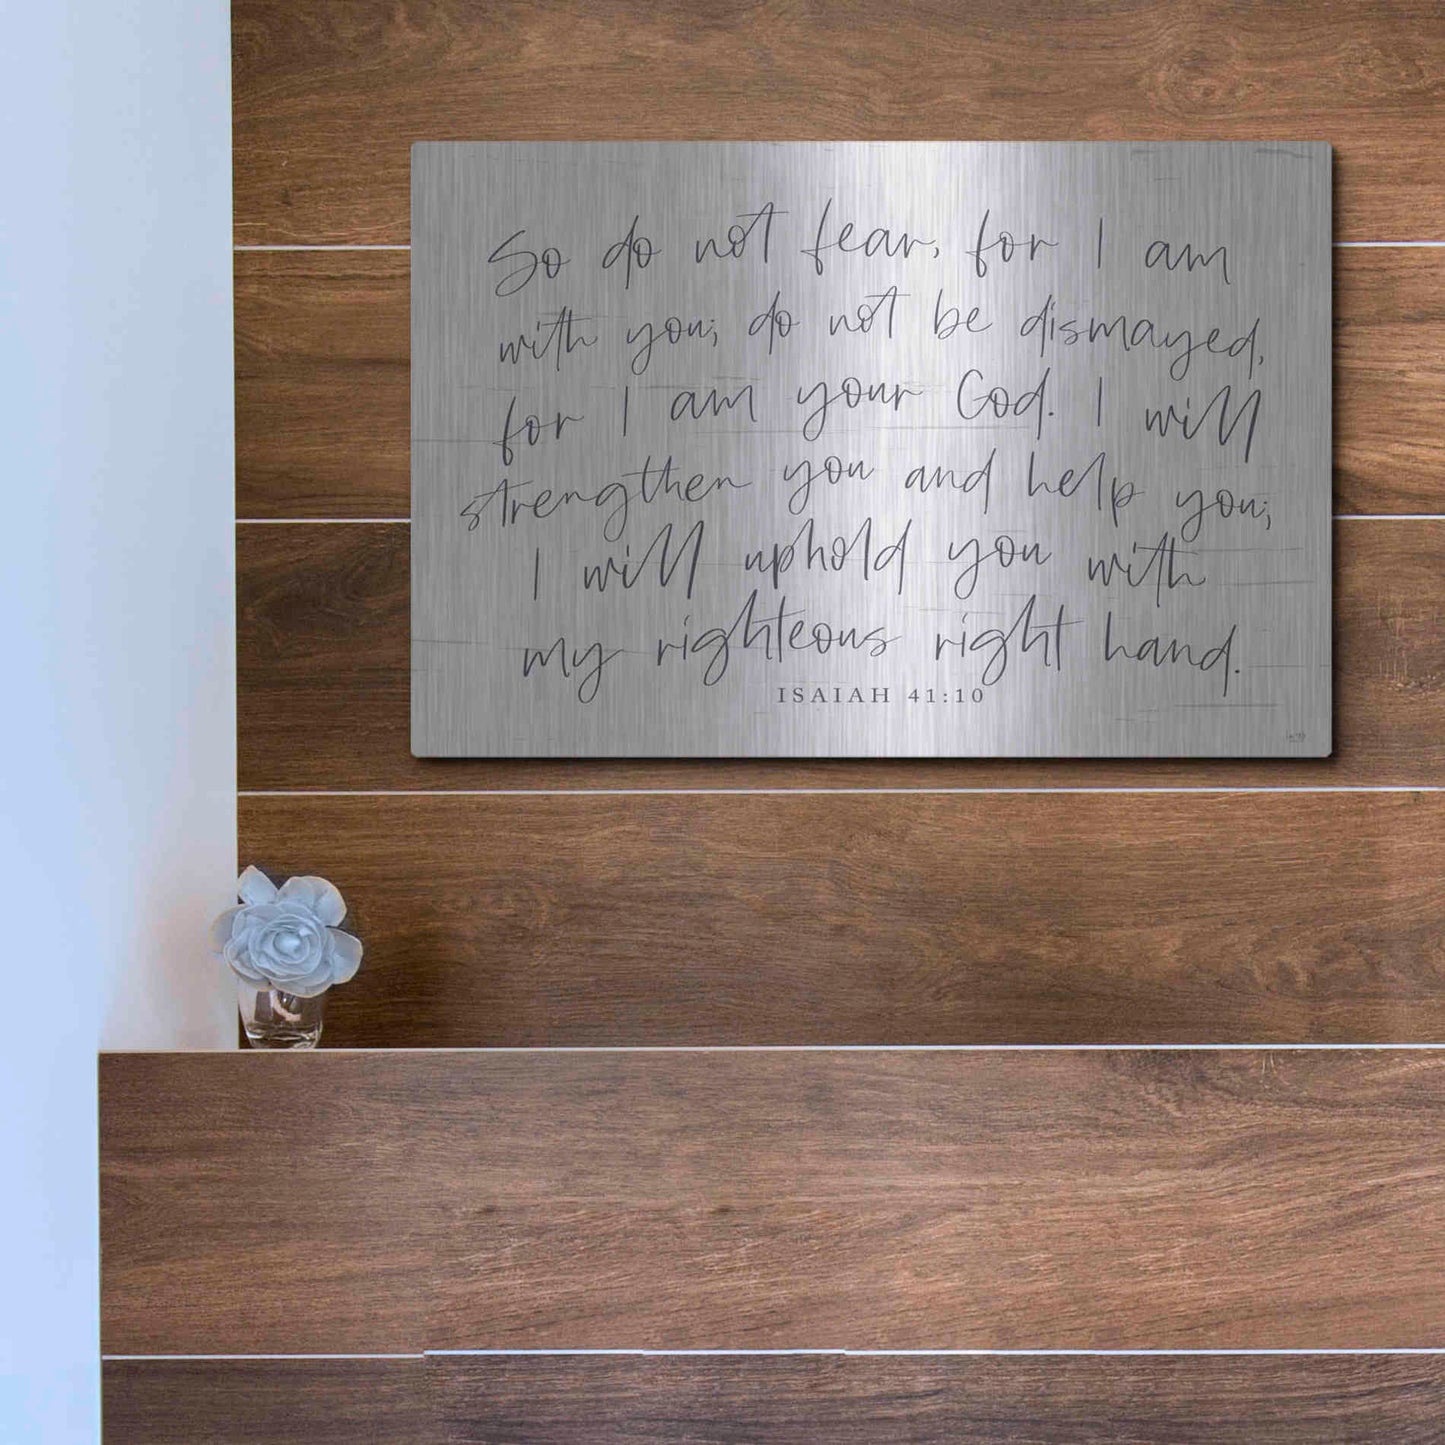 So do not fear, for I am
with you; do not be dismayed,
for I am your God. I will
strengthen you and help you;
I will uphold you with
my righteous right hand.
ISAIAH 41:10